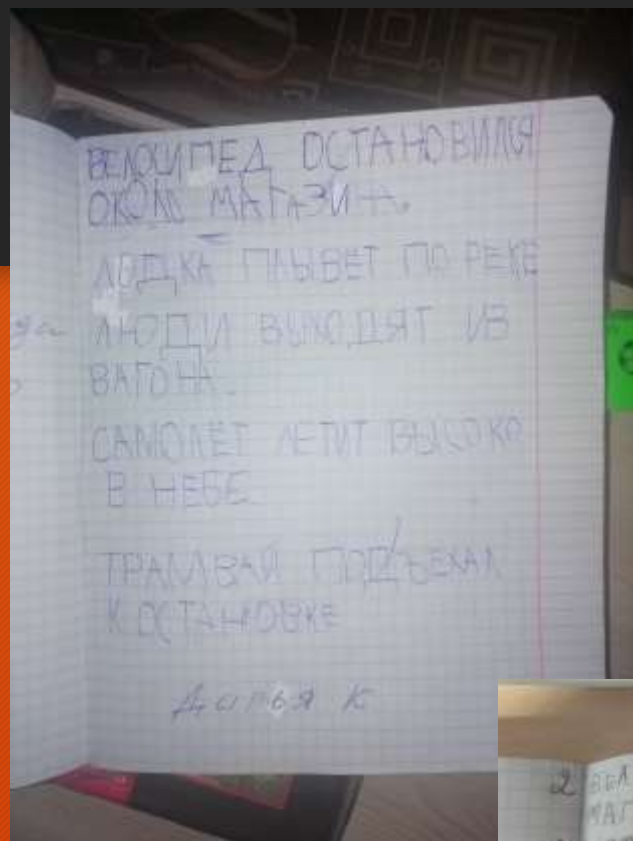 ВЕЛОСИПЕД ОСТАНОВИЛСЯ
ОКОЛО МАГАЗИН.
ЛОДКА ПЛЫВЕТ ПО РЕКЕ
ЛЮДИ ВЫХОДЯТ ИЗ
ВАГОНА.
САМОЛЁТ ЛЕТИТ ВЫСОКО
В НЕБЕ
ТРАМВАЙ ПОДЪЕХАЛ
К ОСТАНОВКЕ
Дарья К
2